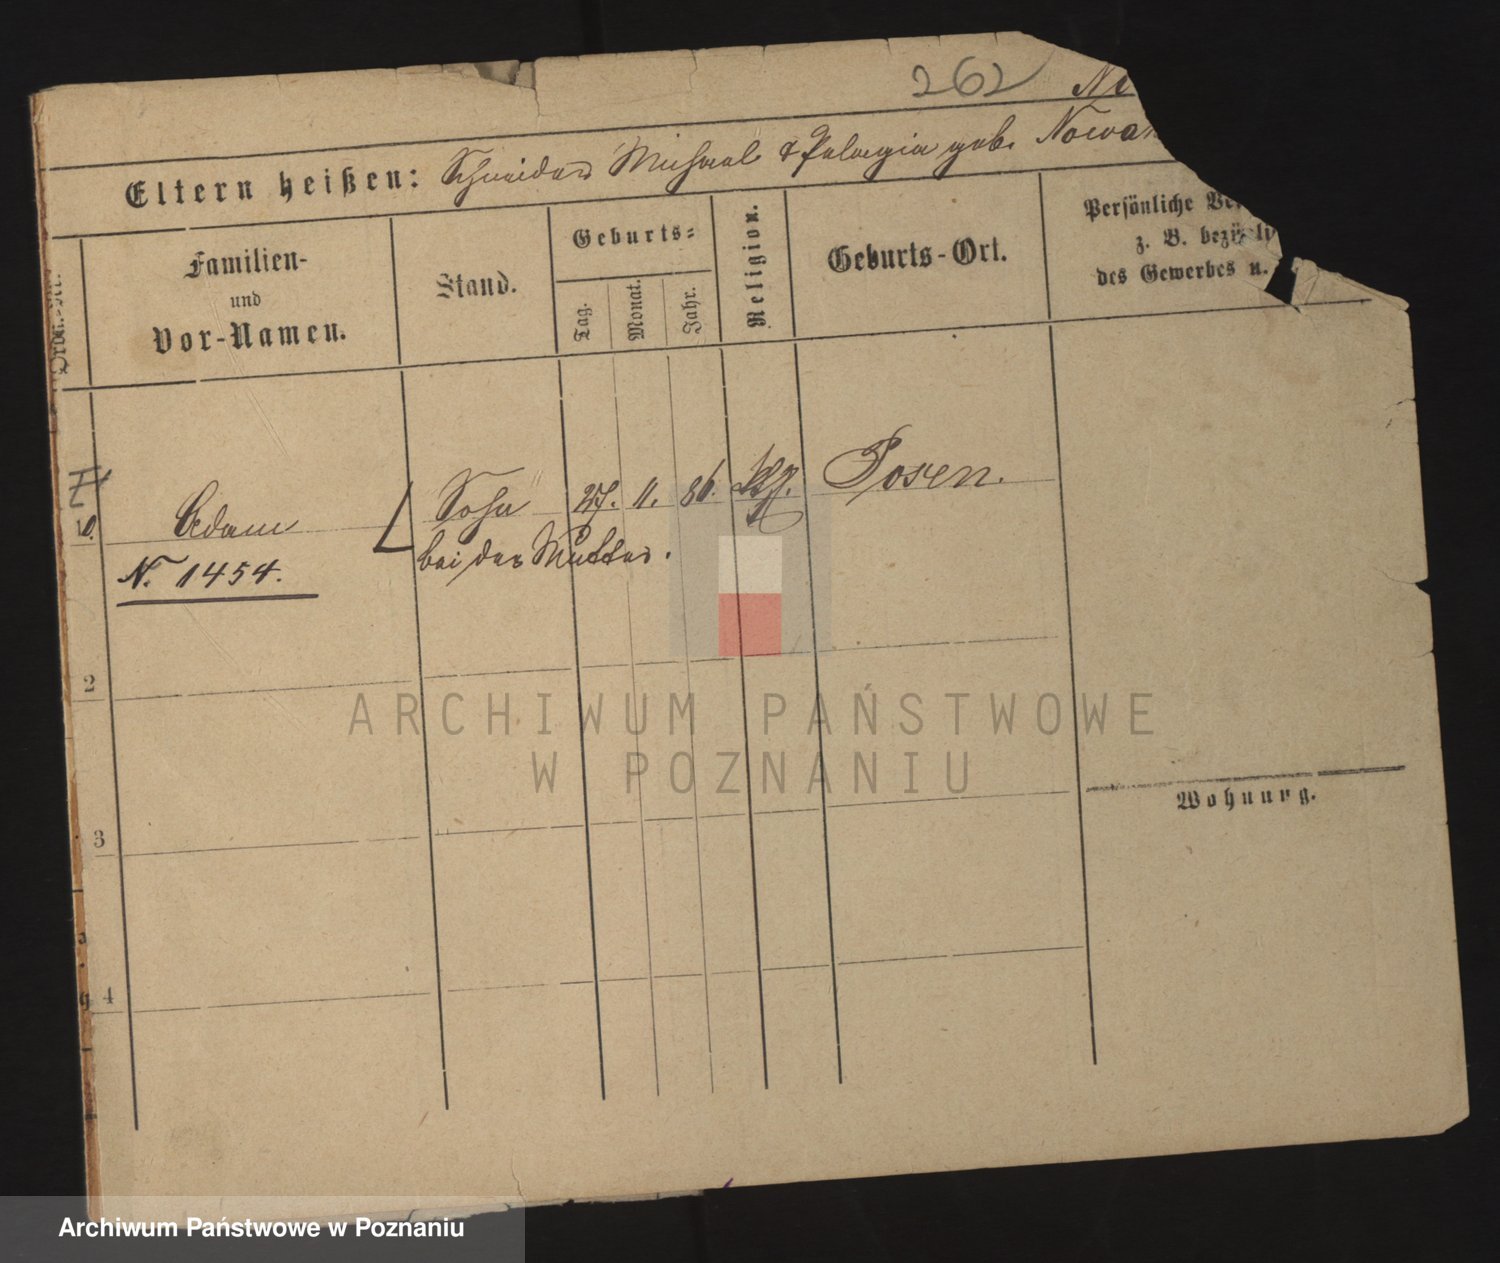 262
Eltern heißen: Schneider Michael & Pelagia geb. Nowa
Ordn.-Nr.
Familien-
und
Vor-Namen.
Stand.
Geburts-
Tag.
Monat.
Jahr.
Religion.
Geburts-Ort.
Persönliche
z. B.
des Gewerbes u.
Adam
Sohn 27. 11. 86. Posen.
bei der Mutter.
N. 1454.
2
3
4
Wohnung.
ARCHIWUM PAŃSTWOWE
W POZNANIU
Archiwum Państwowe w Poznaniu